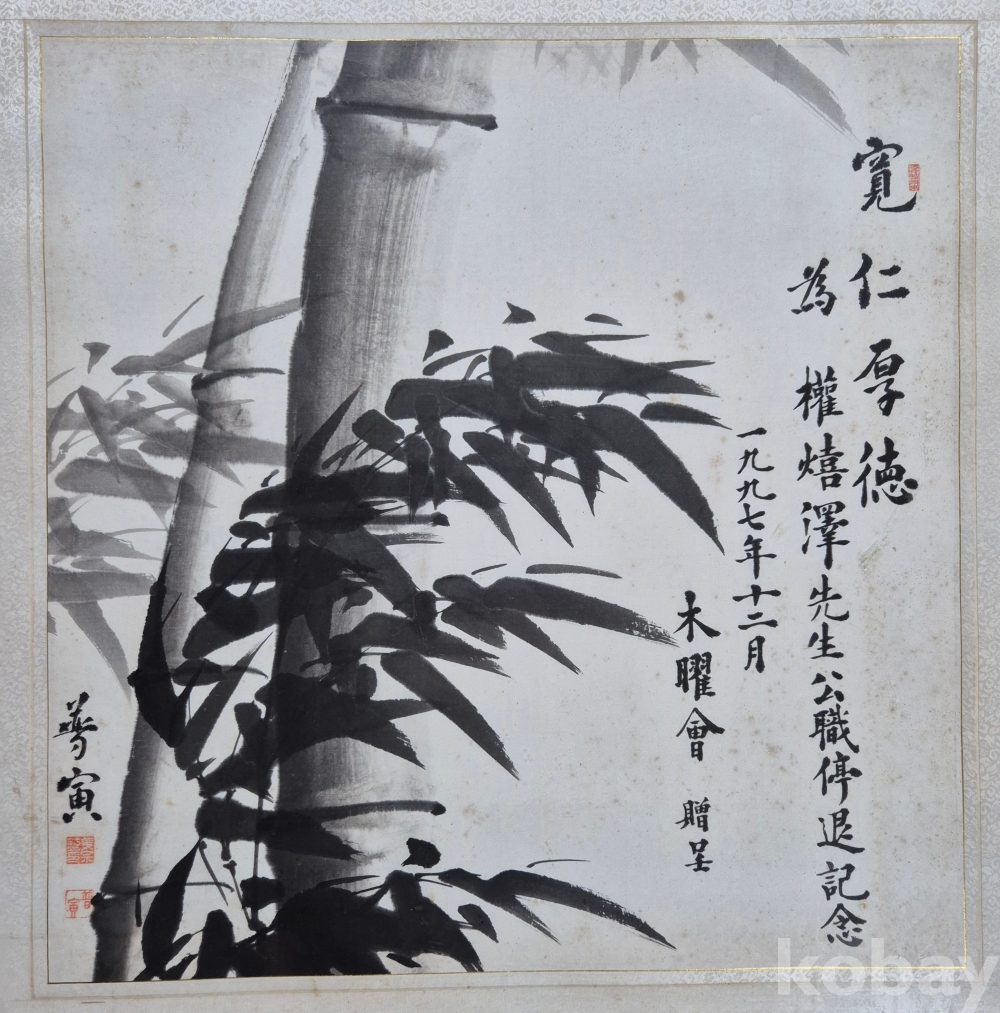 寬仁厚德
為 權熺澤先生公職停退記念
一九九七年十二月
木曜會 贈呈
普寅
普寅
kobay